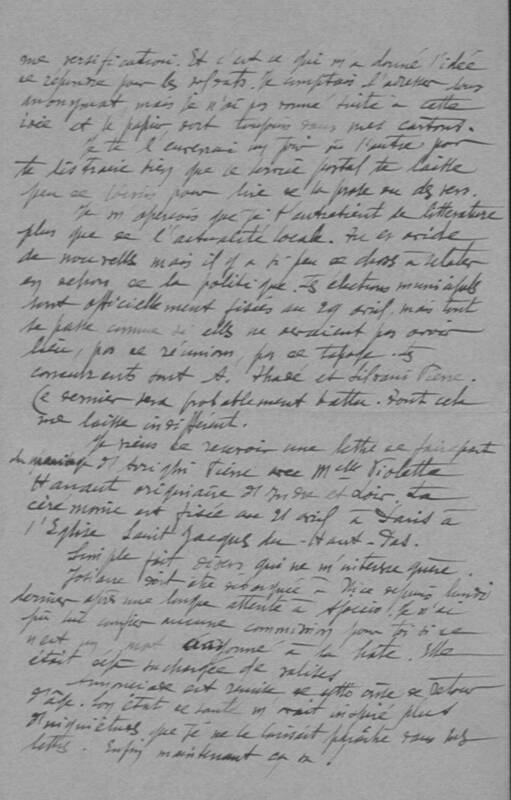 me versification. Et c'est ce qui m'a donné l'idée
de répondre pour les refrats. Je comptais l'adresser sous
anonymat mais je n'ai pas donné suite à cette
idée et le papier dort toujours dans mes cartons.
Je te l'enverrai un jour ou l'autre pour
te distraire bien que ce service postal te laisse
peu de loisirs pour lire de la prose ou des vers.
Je m'aperçois que je t'entretient de littérature
plus que de l'actualité locale. Tu es avide
de nouvelles mais il y a si peu de choses à relater
en dehors de la politique. Les élections municipales
sont officiellement fixées au 29 avril, mais tout
se passe comme si elles ne devaient pas avoir
lieu, pas de réunions, pas de tapage. Les
concurrents sont A. et Silvani Pierre.
Ce dernier sera probablement battu. Tout cela
me laisse indifférent.
Je viens de recevoir une lettre de faire part
du mariage d'Arrighi Pierre avec Melle Violette
Hanaut originaire d'Indre et Loir. La
cérémonie est fixée au 21 avril à Paris à
l'Eglise Saint Jacques du-Haut-Pas.
Simple fait divers qui ne m'intéresse guère.
doit être débarquée à Nice depuis lundi
dernier après une longue attente à Ajaccio. Je n'ai
pu lui confier aucune commission pour toi si ce
n'est un mot à la hâte. Elle
était déjà surchargée de valises
est remise de cette crise de retour
d'âge. Son état de santé m'avait inspiré plus
d'inquiétude que je ne le laissait paraître dans mes
lettres. Enfin maintenant ça va.